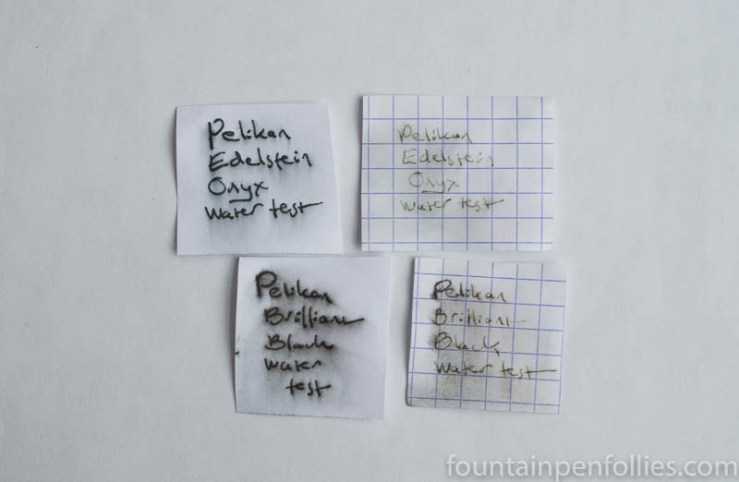 Pelikan
Edelstein
Onyx
Water test
Pelikan
Edelstein
Onyx
Water test
Pelikan
Brilliant
Black
Water
test
Pelikan
Brilliant
Black
Water test
fountainpenfollies.com